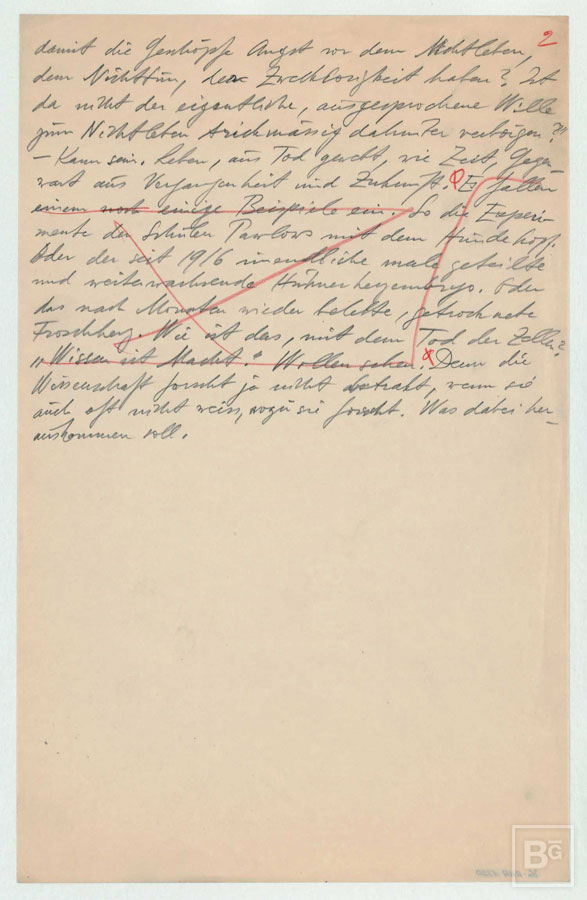 2
damit die Geschöpfe Angst vor dem Nichtleben,
dem Nichttun, der Zwecklosigkeit haben? Ist
da nicht der eigentliche, ausgesprochene Wille
zum Nichtleben arichmässig dahinter verborgen?!
– Kann sein. Leben, aus Tod gemacht, wie Zeit, Gegen-
wart aus Vergangenheit und Zukunft. Es fallen
einem noch einige Beispiele ein. So die Experi-
mente der Schulen Pawlows mit dem Hundekopf.
Oder der seit 1916 unendliche male geteilte
und weiterwachsende Hühnerherzembryo. Oder
das nach Monaten wieder belebte, getrocknete
Froschherz. Wie ist das, mit dem Tod der Zellen?
„Wissen ist Macht." Wollen sehen. Denn die
Wissenschaft forscht ja nicht, wenn sie
auch oft nicht weiss, wozu sie forscht. Was dabei her-
auskommen soll.
BG